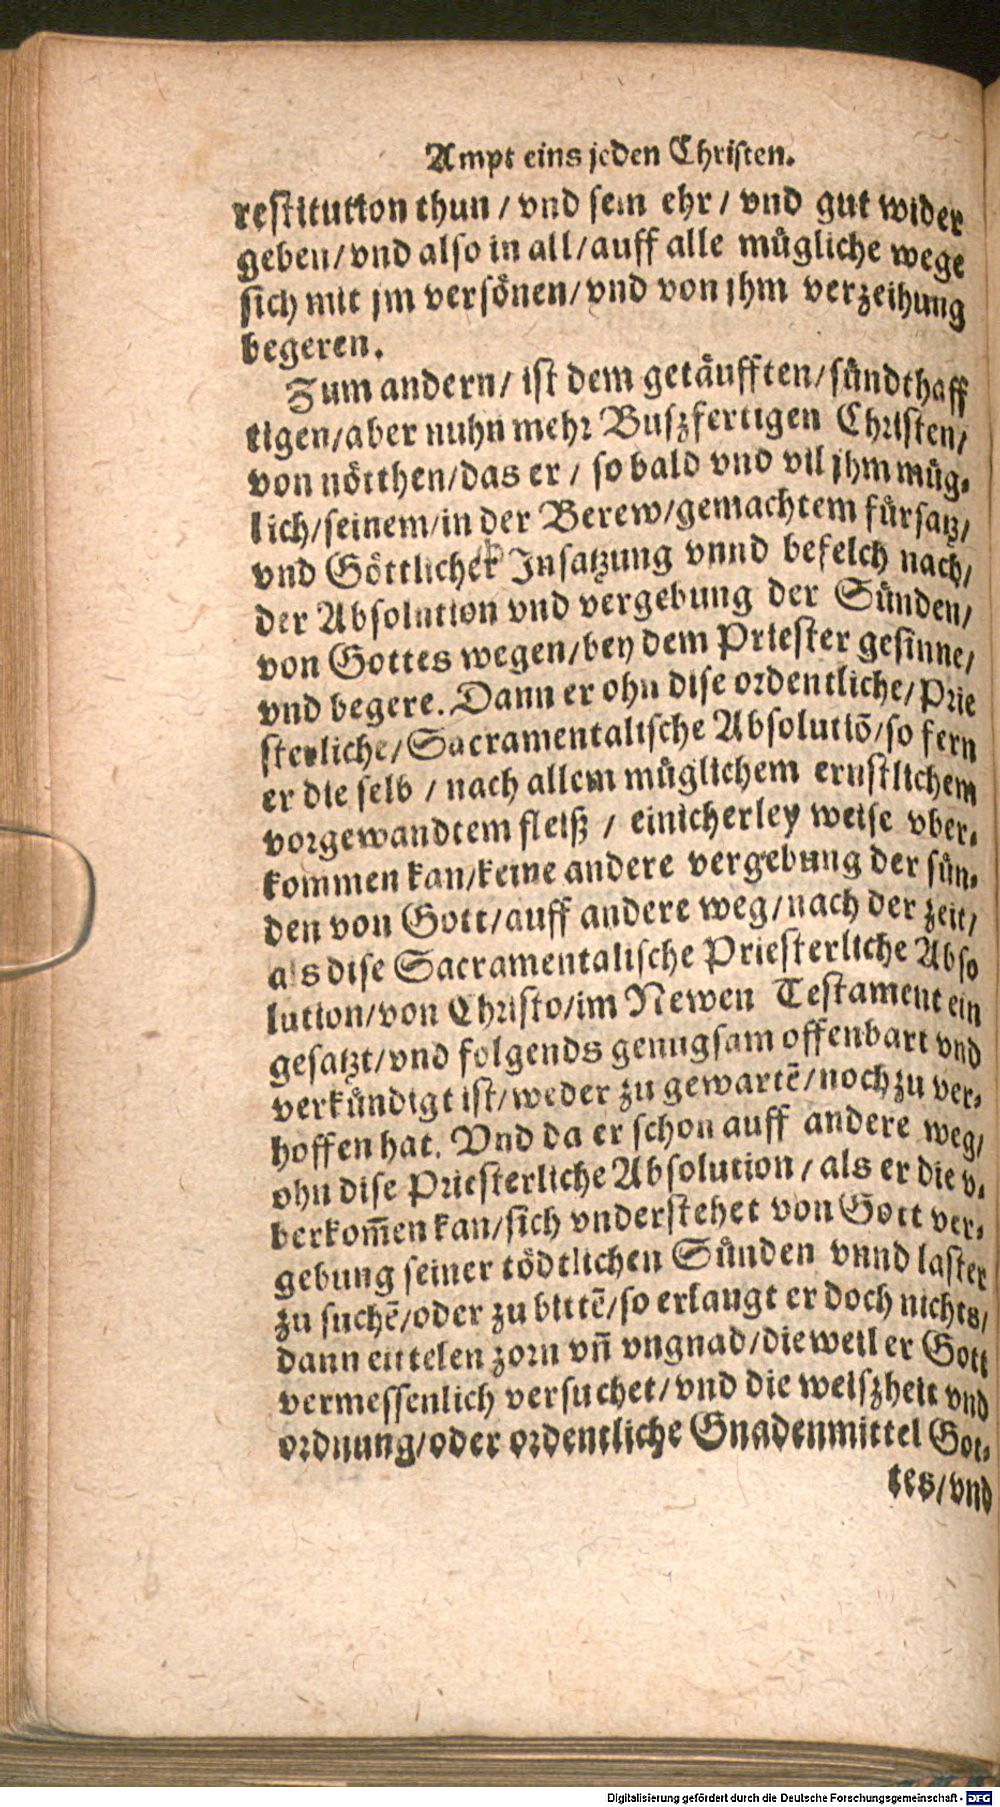 Ampt eins jeden Christen.
restitution thun / vnd sein ehr / vnd gut wider
geben / vnd also in all / auff alle mügliche wege
sich mit jm versönen / vnd von jhm verzeihung
begeren.
Zum andern / ist dem getäufften / sündthaff
tigen / aber nuhn mehr Buszfertigen Christen /
von nötthen / das er / so bald vnd vil jhm müg-
lich / seinem / in der Berew / gemachtem fürsatz /
vnd Göttlicher Insatzung vnnd befelch nach /
der Absolution vnd vergebung der Sünden /
von Gottes wegen / bey dem Priester gesinne /
vnd begere. Dann er ohn dise ordentliche / Prie
sterliche / Sacramentalische Absolutiõ / so fern
er die selb / nach allem müglichem ernstlichem
vorgewandtem fleiß / einicherley weise vber-
kommen kan / keine andere vergebung der sün-
den von Gott / auff andere weg / nach der zeit /
als dise Sacramentalische Priesterliche Abso
lution / von Christo / im Newen Testament ein
gesatzt / vnd folgends genugsam offenbart vnd
verkündigt ist / weder zu gewartẽ / noch zu ver-
hoffen hat. Vnd da er schon auff andere weg /
ohn dise Priesterliche Absolution / als er die v-
berkom̃en kan / sich vnderstehet von Gott ver-
gebung seiner tödtlichen Sünden vnnd laster
zu suchẽ / oder zu bittẽ / so erlangt er doch nichts /
dann eittelen zorn vñ vngnad / dieweil er Gott
vermessenlich versuchet / vnd die weiszheit vnd
ordnung / oder ordentliche Gnadenmittel Got-
tes / vnd
Digitalisierung gefördert durch die Deutsche Forschungsgemeinschaft - DFG